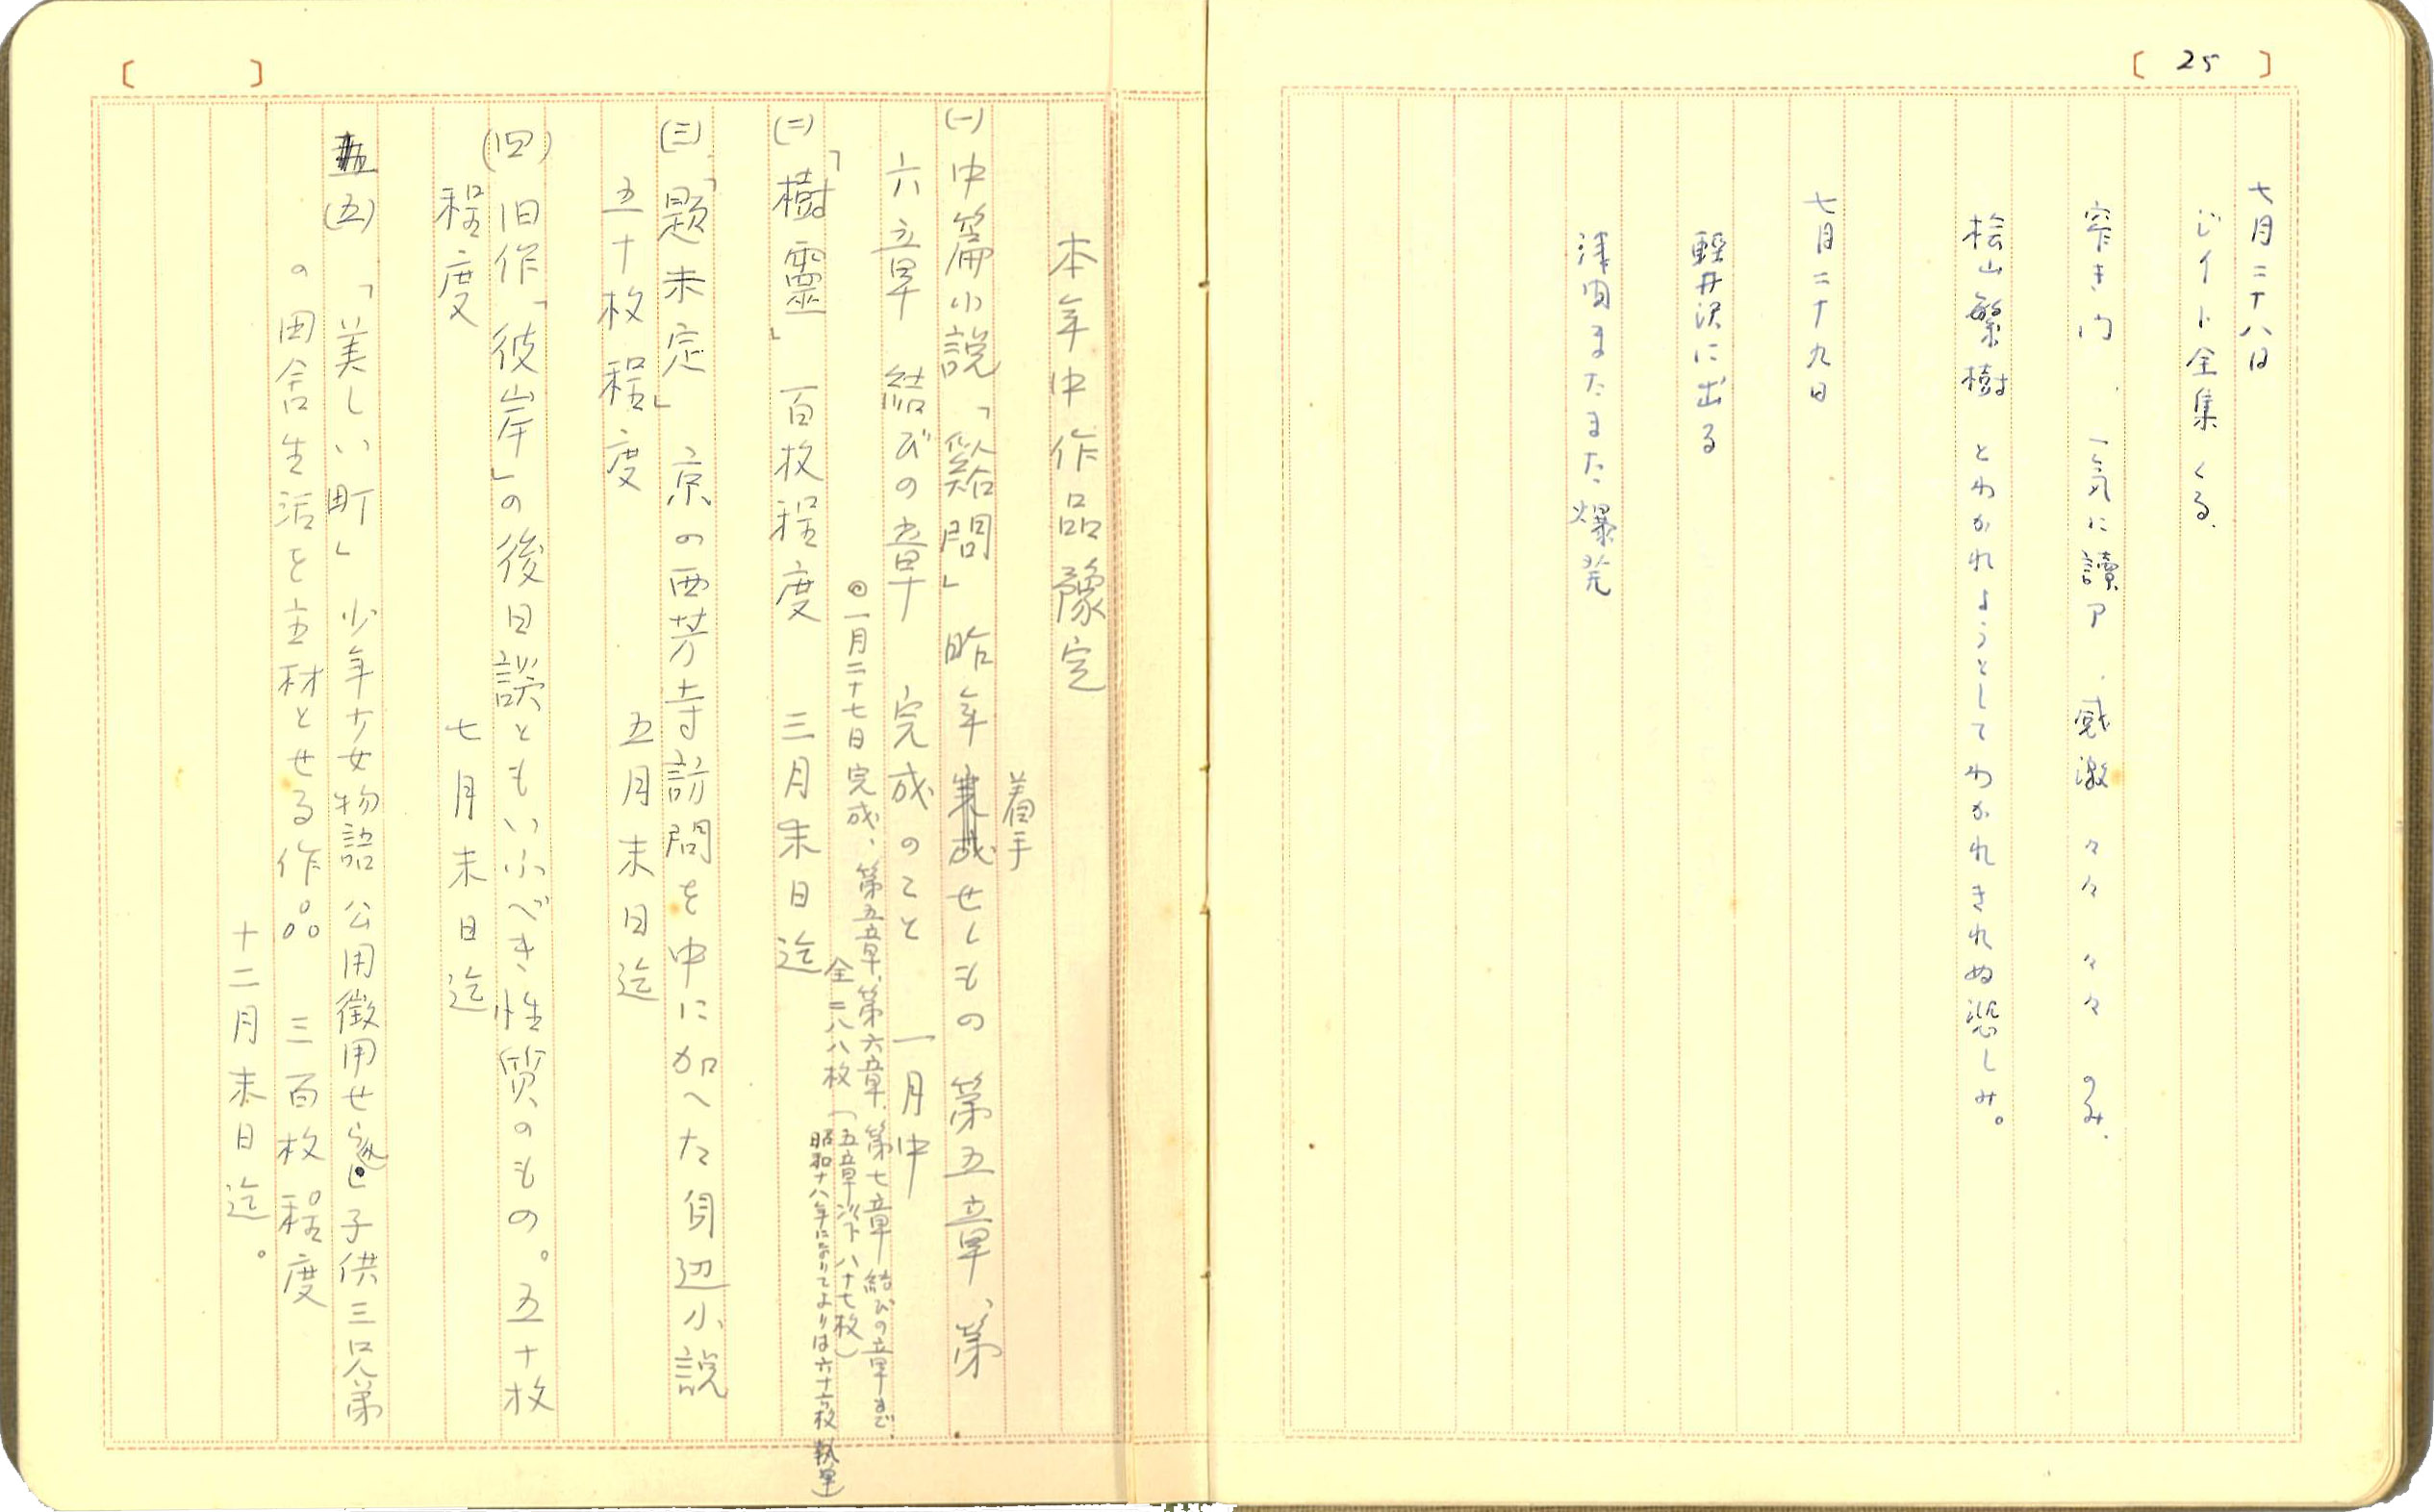 25
七月二十八日
ジイド全集くる.
窄き門、一気に讀了、感激々々々々のみ.
桧山繁樹 とわかれようとしてわかれきれぬ悲しみ。
七月二十九日
軽井沢に出る
浅間またまた爆発
本年中作品豫定
(一)中篇小説「谿間」昨年着手せしもの 第五章、第
六章 結びの章 完成のこと 一月中
◎一月二十七日完成、第五章、第六章、第七章 結びの章まで、
全二八八枚(五章以下八十七枚)
昭和十八年になりてよりは六十六枚執筆)
(二)「樹靈」百枚程度 三月末日迄
(三)「題未定」京の西芳寺訪問を中に加へた身辺小説
五十枚程度 五月末日迄
(四)旧作「彼岸」の後日談ともいふべき性質のもの。五十枚
程度 七月末日迄
(五)「美しい町」少年少女物語 公用徴用せられし子供三兄弟
の田舎生活を主材とせる作品 三百枚程度
十二月末日迄。